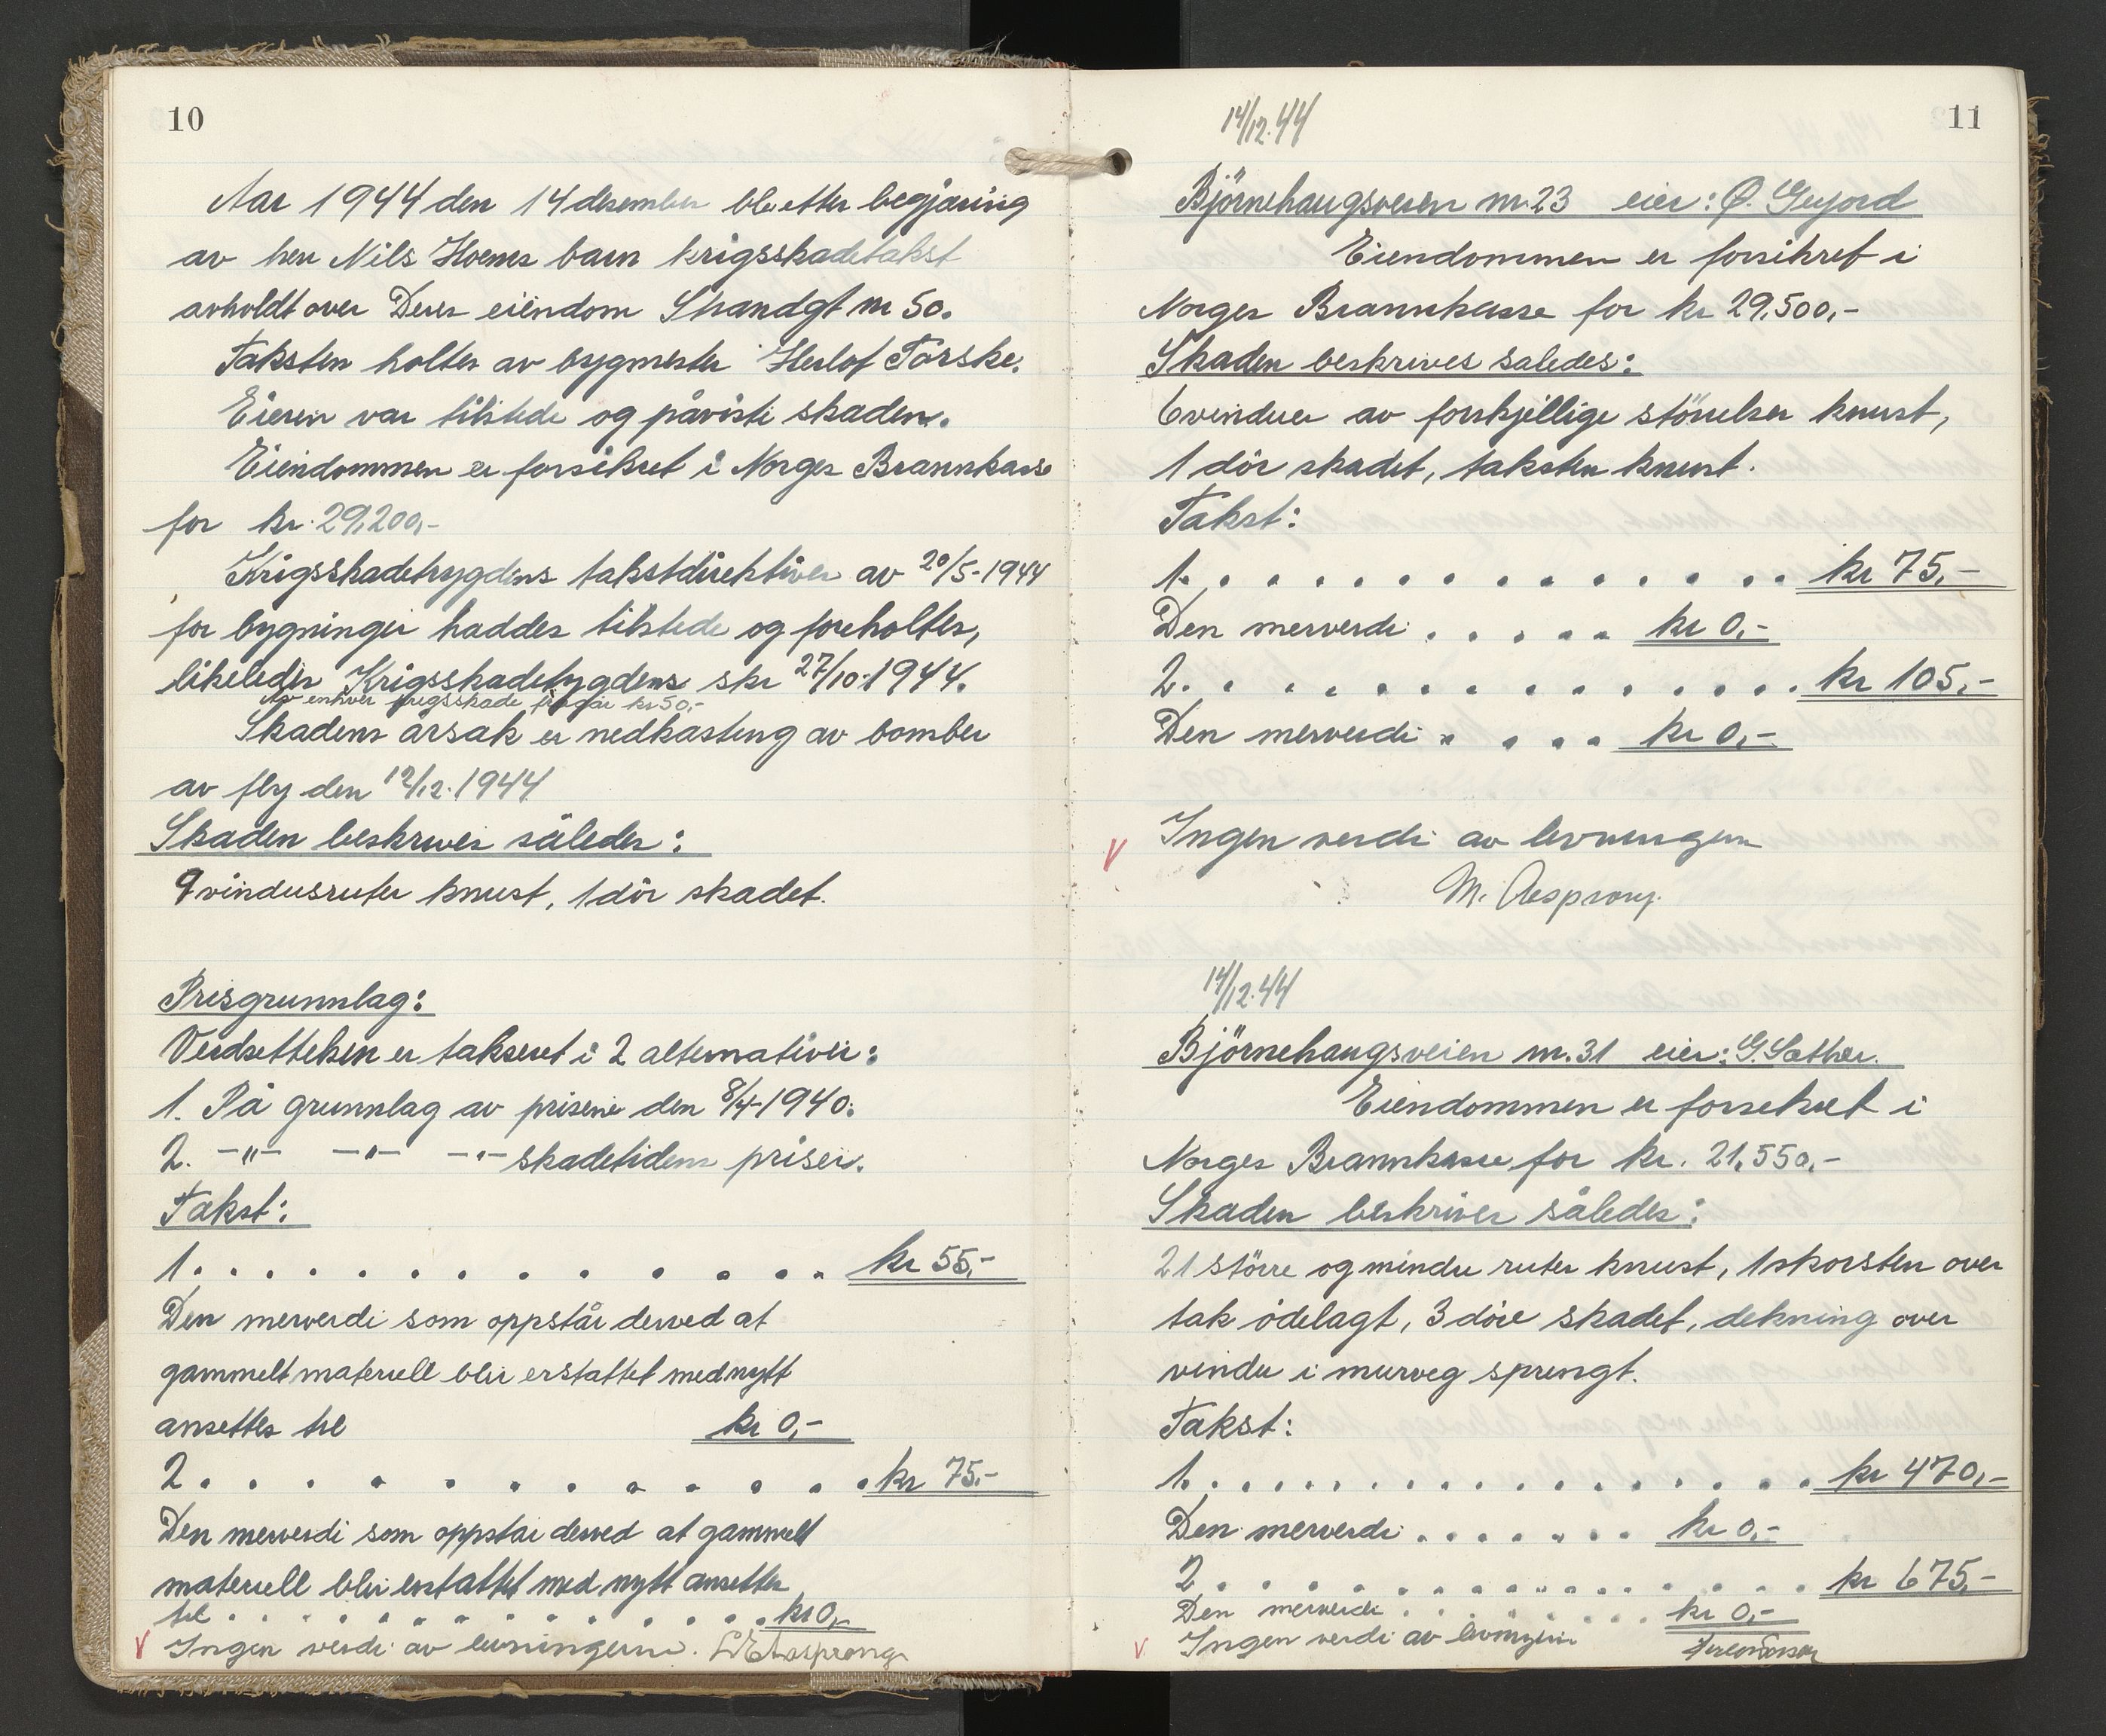 10
Aar 1944 den 14 desember ble etter begjæring
av herr Nils barn krigsskadetakst
avholdt over Deres eiendom Strandgt nr 50.
Taksten holtes av bygmester Herlof Torske.
Eieren var tilstede og påviste skaden.
Eiendommen er forsikret i Norges Brannkasse
for kr. 29,200,-
Krigsskadetrygdens takstdirektiver av 20/5-1944
for bygninger haddes tilstede og foreholtes,
likeledes Krigsskadetrygdens skr 27/10-1944.
Av enhver krigsskade fragår kr 50,-
Skadens årsak er nedkasting av bomber
av fly den 12/12.1944
Skaden beskrives således:
9 vindusruter knust, 1 dör skadet.
Prisgrunnlag:
Verdsettelsen er takseret i 2 alternativer:
1. På grunnlag av prisene den 8/4-1940.
2. -"- -"- -"- skadetidens priser.
Takst:
1. . . . . . . . . . . . . kr 55,-
Den merverdi som oppstår derved at
gammelt materiell blir erstattet med nytt
ansettes til kr 0,-
2 . . . . . . . . . . . . kr 75,-
Den merverdi som oppstår derved at gammelt
materiell blir erstattet med nytt ansettes
til . . . . . . . . . . . . . kr 0,-
V Ingen verdi av levningene. Aasprong
11
14/12.44
Björnehaugsveien nr. 23 eier: Ø.
Eiendommen er forsikret i
Norges Brannkasse for kr 29,500,-
Skaden beskrives saledes:
6 vinduer av forskjellige störrelser knust,
1 dör skadet, taksten knust.
Takst:
1. . . . . . . . . . . . . . kr 75,-
Den merverdi . . . . . . kr 0,-
2. . . . . . . . . . . . . . kr 105,-
Den merverdi . . . . . kr 0,-
V Ingen verdi av levningene
M. Aasprong.
14/12.44
Björnehaugsveien nr. 31 eier: G. Sæther.
Eiendommen er forsikret i
Norges Brannkasse for kr. 21,550,-
Skaden beskrives således:
21 större og mindre ruter knust, 1 skorsten over
tak ödelagt, 3 döre skadet, dekning over
vindu i murveg sprengt.
Takst:
1. . . . . . . . . . . . . . . . kr 470,-
Den merverdi . . . . . . . kr 0,-
2 . . . . . . . . . . . . . . . kr 675,-
Den merverdi . . . . . . . . kr 0,-
V Ingen verdi av levningene Herlof Torske